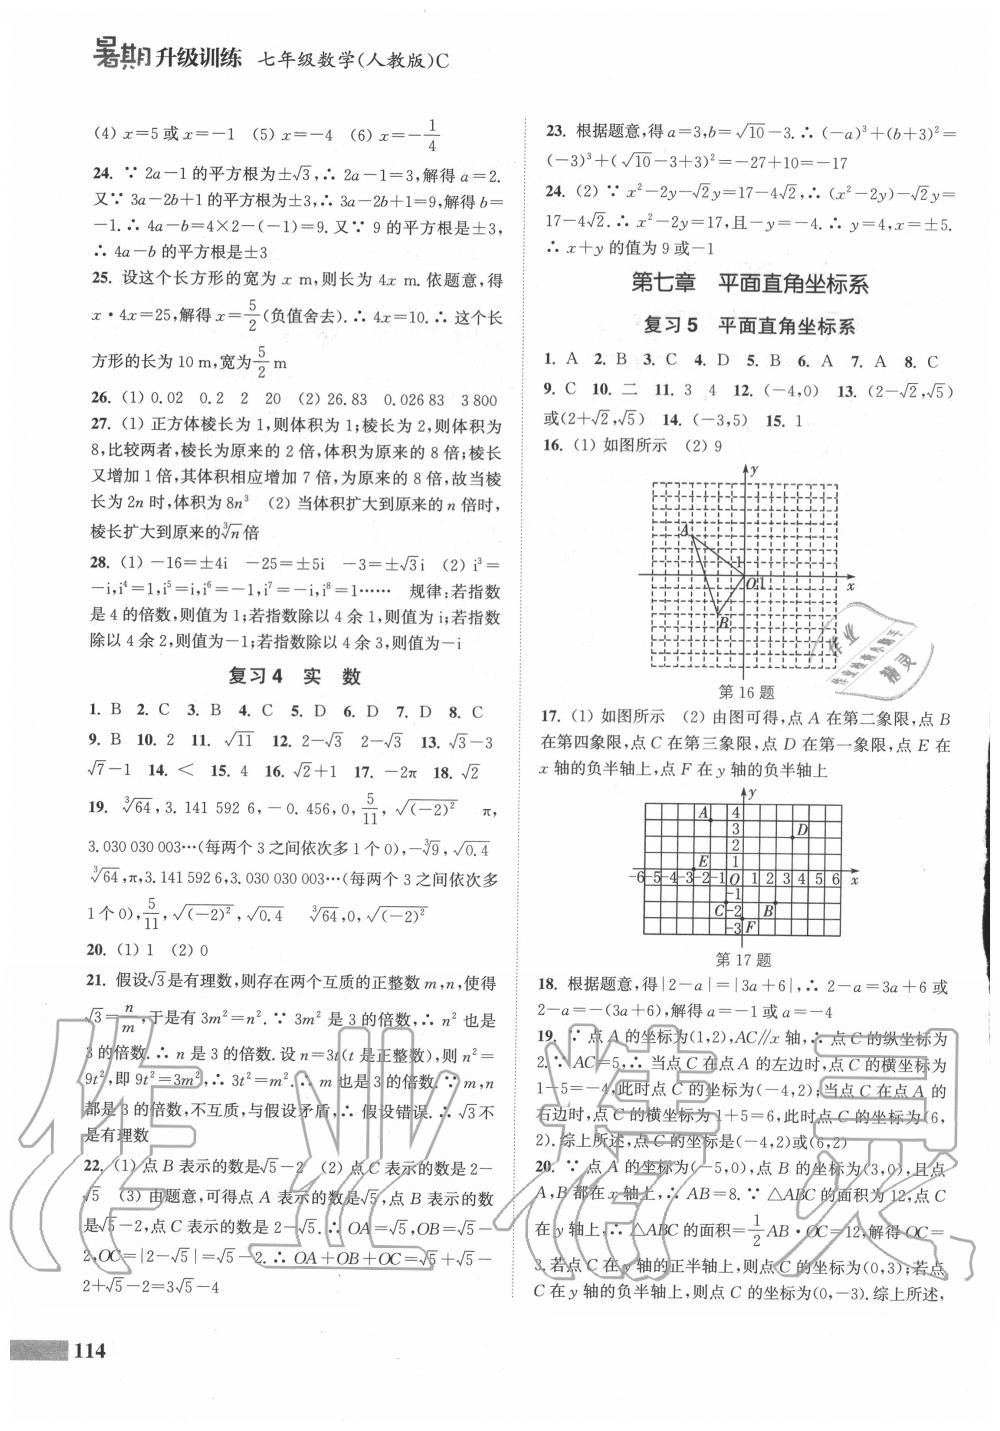 暑期升级训练 七年级数学(人教版)C
(4) x=5或x=-1 (5) x=-4 (6) x=-1/4
24. ∵ 2a-1的平方根为±√3,∴ 2a-1=3,解得a=2.
又∵ 3a-2b+1的平方根为±3,∴ 3a-2b+1=9,解得b=
-1.∴ 4a-b=4×2-(-1)=9.又∵ 9的平方根是±3,
∴ 4a-b的平方根是±3
25. 设这个长方形的宽为x m,则长为4x m.依题意,得
x·4x=25,解得x=5/2(负值舍去).∴ 4x=10.∴ 这个长
方形的长为10 m,宽为5/2 m
26. (1) 0.02 0.2 2 20 (2) 26.83 0.026 83 3 800
27. (1) 正方体棱长为1,则体积为1;棱长为2,则体积为
8,比较两者,棱长为原来的2倍,体积为原来的8倍;棱长
又增加1倍,其体积相应增加7倍,为原来的8倍,故当棱
长为2n时,体积为8n³ (2) 当体积扩大到原来的n倍时,
棱长扩大到原来的∛n倍
28. (1) -16=±4i -25=±5i -3=±√3i (2) i³=
-i,i⁴=1,i⁵=i,i⁶=-1,i⁷=-i,i⁸=1…… 规律:若指数
是4的倍数,则值为1;若指数除以4余1,则值为i;若指数
除以4余2,则值为-1;若指数除以4余3,则值为-i
复习4 实 数
1. B 2. C 3. B 4. C 5. D 6. D 7. D 8. C
9. B 10. 2 11. √11 12. 2-√3 2-√3 13. √3-3
√7-1 14. < 15. 4 16. √2+1 17. -2π 18. √2
19. ∛64,3.141 592 6,-0.456,0,5/11,√(-2)² π,
3.030 030 003…(每两个3之间依次多1个0),-∛9,√0.4
∛64,π,3.141 592 6,3.030 030 003…(每两个3之间依次多
1个0),5/11,√(-2)²,√0.4 ∛64,0,√(-2)²
20. (1) 1 (2) 0
21. 假设√3是有理数,则存在两个互质的正整数m,n,使得
√3=n/m,于是有3m²=n².∵ 3m²是3的倍数,∴ n²也是
3的倍数.∴ n是3的倍数.设n=3t(t是正整数),则n²=
9t²,即9t²=3m²,∴ 3t²=m².∴ m也是3的倍数.∵ m,n
都是3的倍数,不互质,与假设矛盾,∴ 假设错误.∴ √3不
是有理数
22. (1) 点B表示的数是√5-2 (2) 点C表示的数是2-
√5 (3) 由题意,可得点A表示的数是√5,点B表示的数
是√5-2,点C表示的数是2-√5.∴ OA=√5,OB=√5-
2,OC=|2-√5|=√5-2.∴ OA+OB+OC=√5+√5-
2+√5-2=3√5-4
114
23. 根据题意,得a=3,b=√10-3.∴ (-a)³+(b+3)²=
(-3)³+(√10-3+3)²=-27+10=-17
24. (2) ∵ x²-2y-√2y=17-4√2,∴ (x²-2y)-√2y=
17-4√2.∴ x²-2y=17,且-y=-4.∴ y=4,x=±5.
∴ x+y的值为9或-1
第七章 平面直角坐标系
复习5 平面直角坐标系
1. A 2. B 3. C 4. D 5. B 6. A 7. A 8. C
9. C 10. 二 11. 3 4 12. (-4,0) 13. (2-√2,√5)
或(2+√2,√5) 14. (-3,5) 15. 1
16. (1) 如图所示 (2) 9
y
A
1
O 1 x
B
第16题
17. (1) 如图所示 (2) 由图可得,点A在第二象限,点B
在第四象限,点C在第三象限,点D在第一象限,点E在
x轴的负半轴上,点F在y轴的负半轴上
y
A 4
3 D
2
E 1
-6-5-4-3-2-1 O 1 2 3 4 5 6 x
-1
C -2 B
-3 F
第17题
18. 根据题意,得|2-a|=|3a+6|,∴ 2-a=3a+6或
2-a=-(3a+6),解得a=-1或a=-4
19. ∵ 点A的坐标为(1,2),AC∥x轴,∴ 点C的纵坐标为
2.∵ AC=5,∴ 当点C在点A的左边时,点C的横坐标为
1-5=-4,此时点C的坐标为(-4,2);当点C在点A的
右边时,点C的横坐标为1+5=6,此时点C的坐标为(6,
2).综上所述,点C的坐标是(-4,2)或(6,2)
20. ∵ 点A的坐标为(-5,0),点B的坐标为(3,0),且点
A,B都在x轴上,∴ AB=8.∵ △ABC的面积为12,点C
在y轴上,∴ △ABC的面积=1/2AB·OC=12,解得OC=
3.若点C在y轴的正半轴上,则点C的坐标为(0,3);若点
C在y轴的负半轴上,则点C的坐标为(0,-3).综上所述,
作业精灵
作业
作业检查小助手
精灵